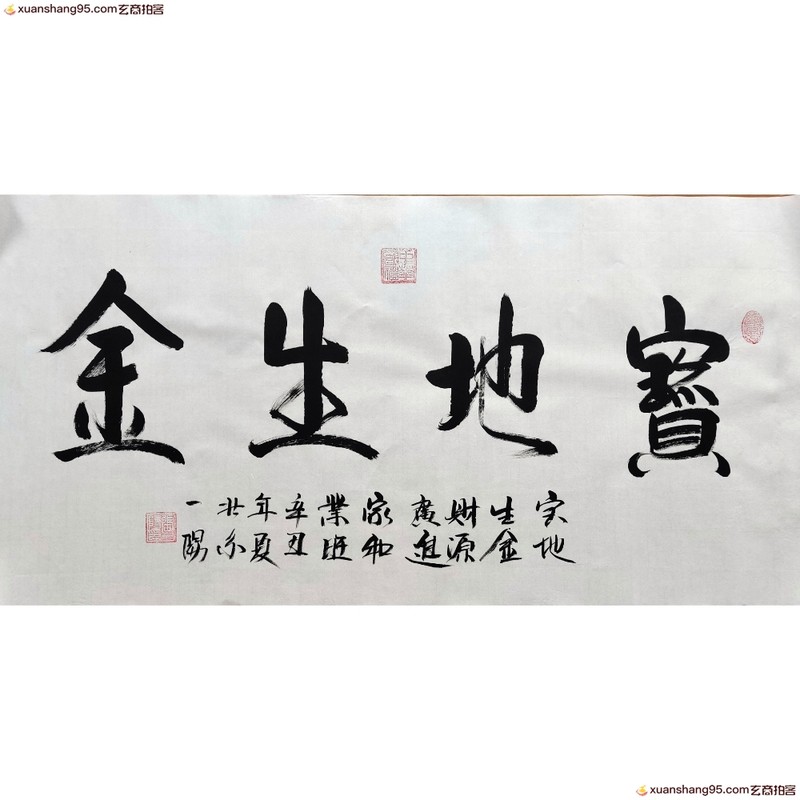 xuanshang95.com玄商拍客
寶地生金
宝地
生金
财源
廣進
家和
業旺
辛丑
年夏
北京
一陽
xuanshang95.com玄商拍客